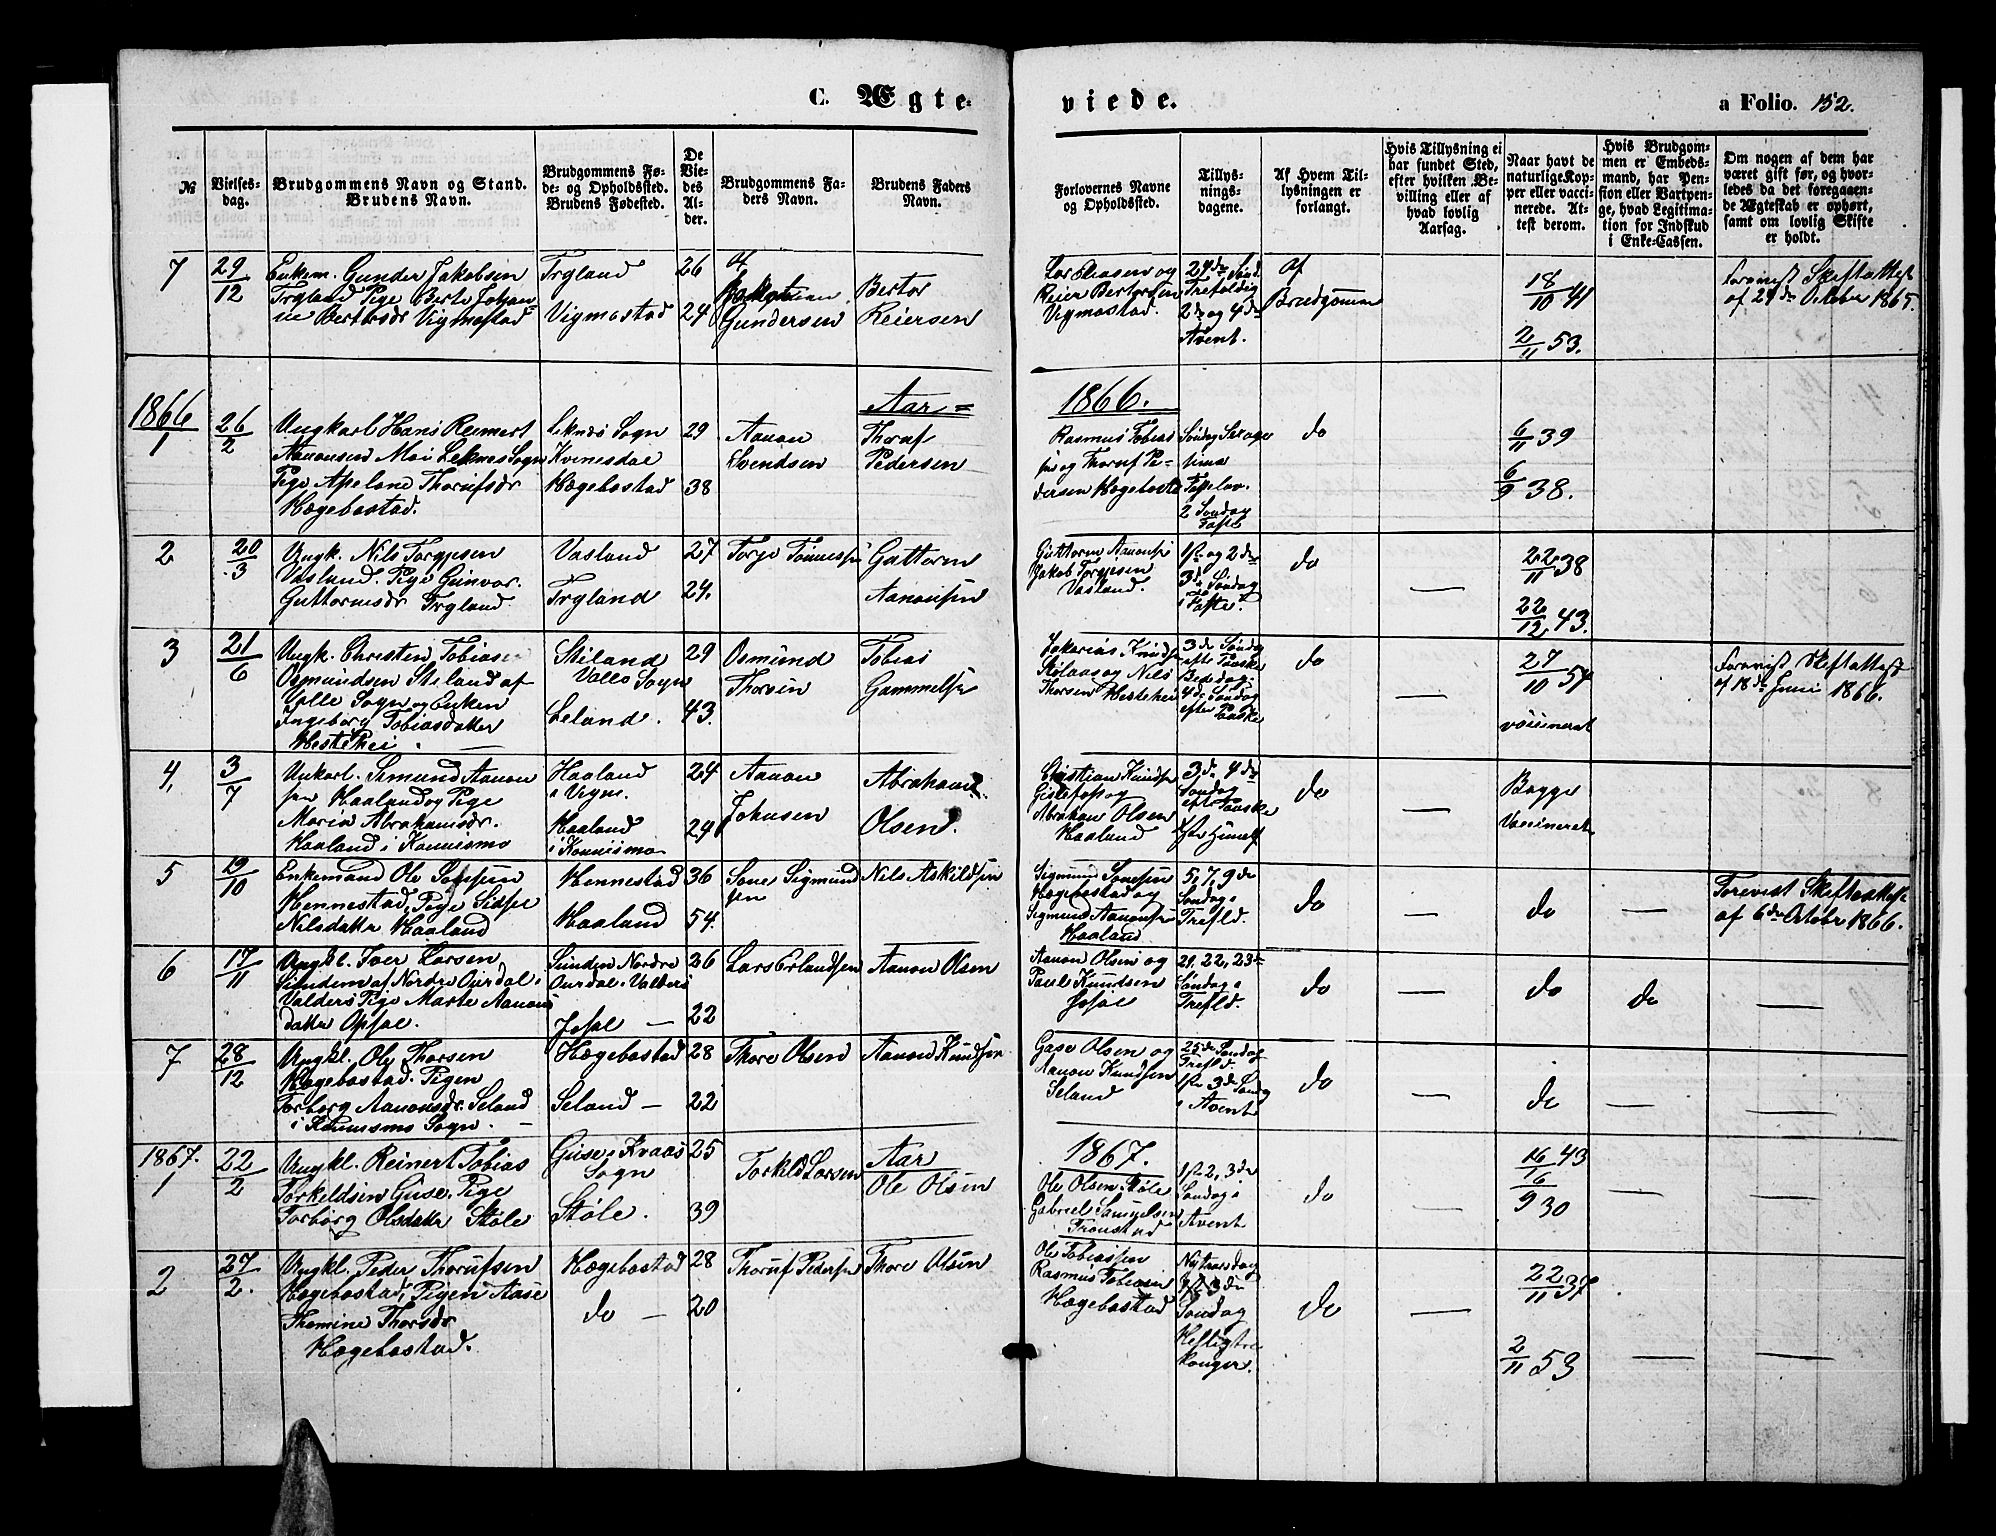 C. Ægte-
viede.
a Folio. 152.
№
Vielses-
dag.
Brudgommens Navn og Stand.
Brudens Navn.
Brudgommens Fø-
de- og Opholdssted.
Brudens Fødested.
De
Vie-
des
Al-
der.
Brudgommens Fa-
ders Navn.
Brudens Faders
Navn.
Forlovernes Navne
og Opholdssted.
Tillys-
nings-
dagene.
Af Hvem Til-
lysningen er
forlangt.
Hvis Tillysning ei
har fundet Sted,
efter hvilken Be-
villing eller af
hvad lovlig
Aarsag.
Naar havt de
naturlige Kop-
per eller vacci-
nerede. At-
test derom.
Hvis Brudgom-
men er Embeds-
mand, har Pen-
sion eller Vartpen-
ge, hvad Legitima-
tion for Indskud
i Enke-Cassen.
Om nogen af dem har
været gift før, og hvor-
ledes da det foregaaen-
de Ægteskab er ophørt,
samt om lovlig Skifte
er holdt.
7
29/12
Enkem. Gunder Jakobsen
Trgland Pige Berte Johan-
ne Bertorsdr Vigmostad
Trgland
Vigmostad
26
24
Gundersen
Bertor
Reiersen
Reier Bertorsen
Vigmostad.
24de Sønd.
Trefoldig
2de og 4de
Avent.
Af
Brudgomm
18/10 41
2/11 53.
Forevist Skifteattest
af 24de October 1865.
1866
Aar
1866.
1
26/2
Ungkarl Hans Reinert
Aanonsen Moi Leknes Sogn
Pige Aselene Thorufsdr
Hægebostad.
Leknes Sogn
Kvinesdal
Hægebostad
29
38
Aanon
Svendsen
Thoruf
Pedersen
Rasmus Tobias
sen og Thoruf Pe-
dersen Hægebosta
Søndag Sexage
sima
Fastelav.
2 Søndag
Faste
do
6/11 39
6/9 38.
2
20/3
Ungk. Nils Torgjesen
Vasland. Pige Gunvor
Guttormsdr Trgland.
Vasland
Trgland
27
24.
Torje Tønnessen
Guttorm
Aanonsen
Guttorm Aanonsen
Jakob Torgjesen
Vasland.
1ste og 2de
3de Søndag
i Faste.
do
—
22/11 38
22/12 43.
3
21/6
Ungk. Christen Tobias
Osmundsen Stiland af
Valle Sogn og Enken
Ingeborg Tobiasdatter
Hestehei
Stiland
Valle Sogn
Leland.
29
43.
Osmund
Thorsen
Tobias
Gammelsen
Zakarias Knudsen
Stølaas og Nils
Thorsen Hestehei
3de Søndag
efter Paaske
Bededag
4de Søndag
efter Paaske
do
—
27/10 54
vaccineret
Forevist Skifteattest
af 18de Juni 1866.
4,
3/7
Unkarl. Simund Aanon
sen Haaland og Pige
Maria Abrahamsdr.
Haaland i Konnismo
Haaland
i Vigm.
Haaland
i Konnismo
24
24
Aanon
Johnsen
Abraham
Olsen.
Christian Knudsen
Abraham Olsen
Haaland
3de 4de
Søndag
eft Paaske
do
—
Begge
Vaccineret
5
19/10
Enkemand Ole
Hennestad, Pige Sidsel
Nilsdatter Haaland
Hennestad
Haaland
36
54.
Sone Sigmund
sen
Nils Askildsen
Sigmund Sonesen
Hægebostad og
Sigmund Aanonsen
Haaland
5, 7, 9de
Søndag i
Trefld.
do
—
do
—
Forevist Skifteattest
af 6de October 1866.
6
17/11
Ungkl. Iver Larsen
Sundem af Nordre Ourdal i
Valders Pige Marte Aanons
datter Opsal.
Sundem Nordre
Ourdal i Valders
Josal —
26
22
Lars Erlandsen
Aanon Olsen
Aanon Olsen og
Paul Knudsen
Josal
21, 22, 23de
Søndag i
Trefld.
do
—
do
do
—
7
28/12
Ungkl. Ole Thorsen
Hægebostad. Pigen
Torborg Aanonsdr. Seland
i Konnismo Sogn. —
Hægebostad
Seland —
28
22
Thore Olsen
Aanon Knudsen
Gase Olsen og
Aanon Knudsen
Seland
25de Søndag
Trefld.
1ste 3de Søndag
i Avent
do
—
do
—
—
1867.
Aar
1867.
1
22/2
Ungkl. Reinert Tobias
Torkeldsen Guse. Pige
Torborg Olsdatter Støle
Guse i Kvaas
Sogn
Støle.
25
39
Torkeld Larsen
Ole Olsen
Ole Olsen Støle
Gabriel Samuelsen
Tronstad
1ste 2, 3de
Søndag i
Avent
do
—
16 43
16/9 30
—
—
2
27/2.
Ungkl. Peder Thorufsen
Hægebostad, Pigen Aase
Themine Thorsdr
Hægebostad.
Hægebostad
do —
28
20
Thoruf Pedersen
Thore Olsen
Ole Tobiassen
Rasmus Tobiasen
Hægebostad
Nytaarsdag
1ste 3de
Søndag
Helligtre
konger.
do
—
22/11 37
2/11 53
—
—